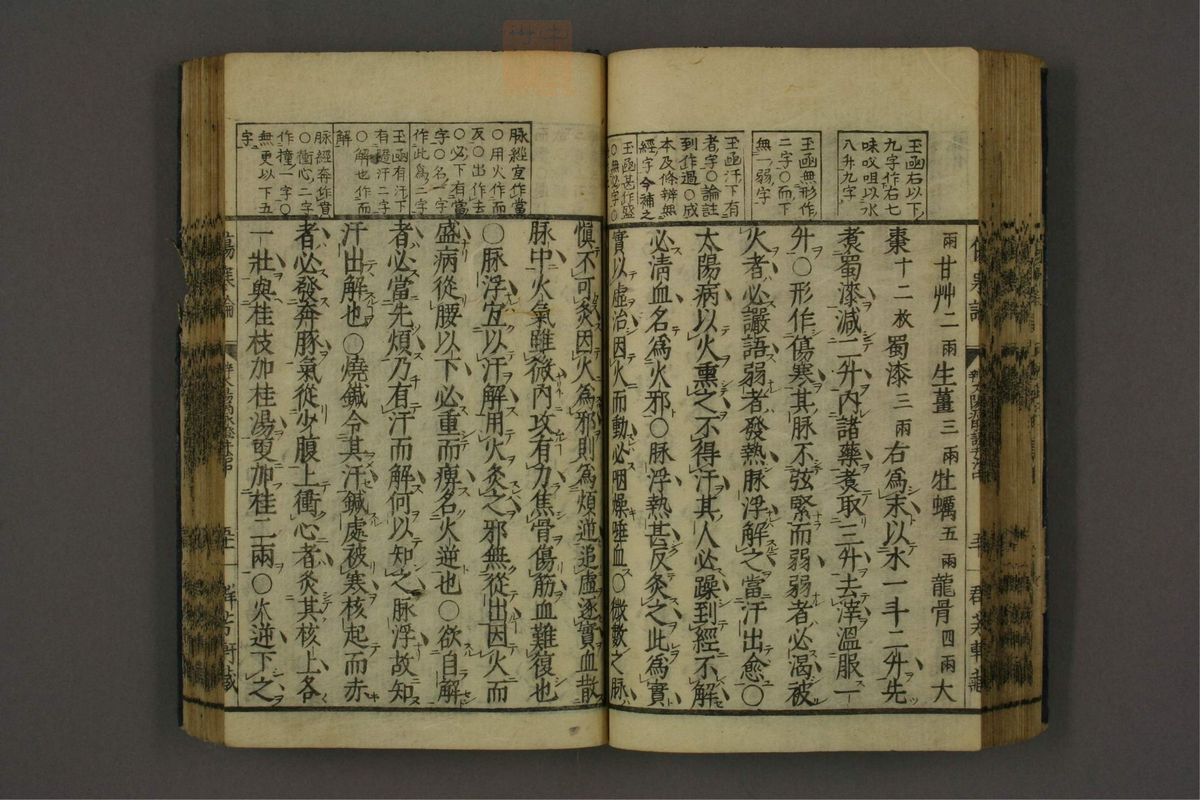 玉函右以下
九字作右七
味㕮咀以水
八升九字
玉函無形作
二字〇而下
無一弱字
玉函汗下有
者字〇論註
到作過〇成
本及條辨無
經字今補之
玉函甚作盛
〇無必字〇
兩甘艸二兩生薑三兩牡蠣五兩龍骨四兩大
棗十二枚蜀漆三兩右爲末以水一斗二升先
煑蜀漆減二升内諸藥煑取三升去滓溫服一
升〇形作傷寒其脉不弦緊而弱弱者必渴被
火者必讝語弱者發熱脉浮解之當汗出愈〇
太陽病以火熏之不得汗其人必躁到經不解
必清血名爲火邪〇脉浮熱甚反灸之此爲實
實以虛治因火而動必咽燥唾血〇微數之脉
脉經宐作當
〇用火作而
反〇出作去
〇必下有當
字〇名一字
作此爲二字
玉函有汗下
有隨汗二字
〇解也作而
解
脉經奔作賁
〇衝心二字
作撞一字〇
無更以下五
字
愼不可灸因火爲邪則爲煩逆追虛逐實血散
脉中火氣雖微内攻有力焦骨傷筋血難復也
〇脉浮宐以汗解用火灸之邪無從出因火而
盛病從腰以下必重而痹名火逆也〇欲自解
者必當先煩乃有汗而解何以知之脉浮故知
汗出解也〇燒鍼令其汗鍼處被寒核起而赤
者必發奔豚氣從少腹上衝心者灸其核上各
一壯與桂枝加桂湯更加桂二兩〇火逆下之